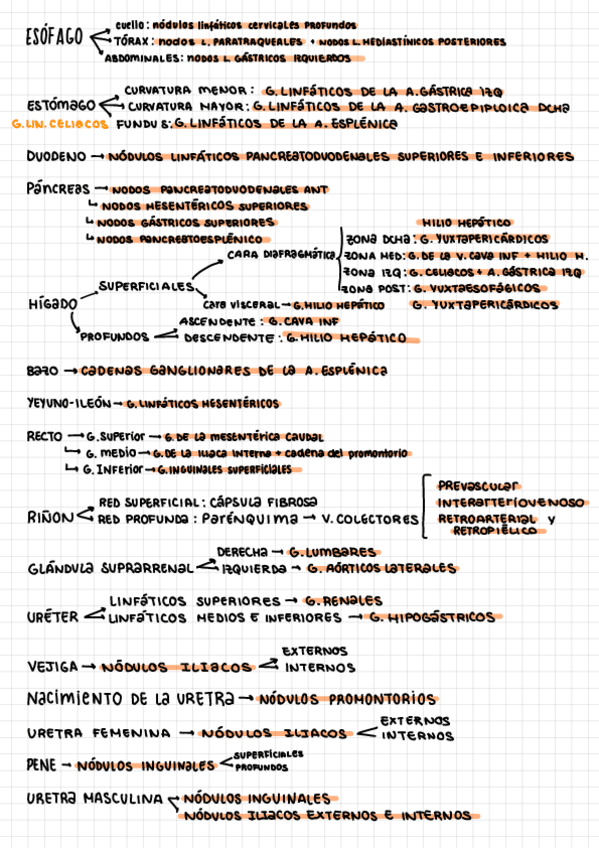 ESÓFAGO
cuello: nódulos linfáticos cervicales profundos
TÓRAX: nodos L. PARATRAQUEALES + NODOS L. MEDIASTÍNICOS POSTERIORES
ABDOMINALES: NODOS L. GÁSTRICOS IZQUIERDOS
ESTÓMAGO
G.LIN.CELIACOS
CURVATURA MENOR: G. LINFÁTICOS DE LA A. GÁSTRICA IZQ
CURVATURA MAYOR: G. LINFÁTICOS DE LA A. GASTROEPIPLOICA DCHA
FUNDUS: G. LINFÁTICOS DE LA A. ESPLÉNICA
DUODENO → NÓDULOS LINFÁTICOS PANCREATODUODENALES SUPERIORES E INFERIORES
PÁNCREAS → NODOS PANCREATODUODENALES ANT
↳ NODOS MESENTÉRICOS SUPERIORES
↳ NODOS GÁSTRICOS SUPERIORES
↳ NODOS PANCREATOESPLÉNICO
HÍGADO
SUPERFICIALES
CARA DIAFRAGMÁTICA
HILIO HEPÁTICO
ZONA DCHA: G. YUXTAPERICÁRDICOS
ZONA MED: G. DE LA V. CAVA INF + HILIO H.
ZONA IZQ: G. CELIACOS + A. GÁSTRICA IZQ
ZONA POST: G. YUXTAESOFÁGICOS
G. YUXTAPERICÁRDICOS
CARA VISCERAL → G. HILIO HEPÁTICO
PROFUNDOS
ASCENDENTE: G. CAVA INF
DESCENDENTE: G. HILIO HEPÁTICO
BAZO → CADENAS GANGLIONARES DE LA A. ESPLÉNICA
YEYUNO-ILEÓN → G. LINFÁTICOS MESENTÉRICOS
RECTO → G. Superior → G. DE LA MESENTÉRICA CAUDAL
↳ G. medio → G. DE LA ILIACA INTERNA + cadena del promontorio
↳ G. Inferior → G. INGUINALES SUPERFICIALES
RIÑON
RED SUPERFICIAL: CÁPSULA FIBROSA
RED PROFUNDA: PARÉNQUIMA → V. COLECTORES
PREVASCULAR
INTERARTERÍOVENOSO
RETROARTERIAL Y
RETROPIÉLICO
GLÁNDULA SUPRARRENAL
DERECHA → G. LUMBARES
IZQUIERDA → G. AÓRTICOS LATERALES
URÉTER
LINFÁTICOS SUPERIORES → G. RENALES
LINFÁTICOS MEDIOS E INFERIORES → G. HIPOGÁSTRICOS
VEJIGA → NÓDULOS ILIACOS
EXTERNOS
INTERNOS
NACIMIENTO DE LA URETRA → NÓDULOS PROMONTORIOS
URETRA FEMENINA → NÓDULOS ILIACOS
EXTERNOS
INTERNOS
PENE → NÓDULOS INGUINALES
SUPERFICIALES
PROFUNDOS
URETRA MASCULINA
NÓDULOS INGUINALES
NÓDULOS ILIACOS EXTERNOS E INTERNOS